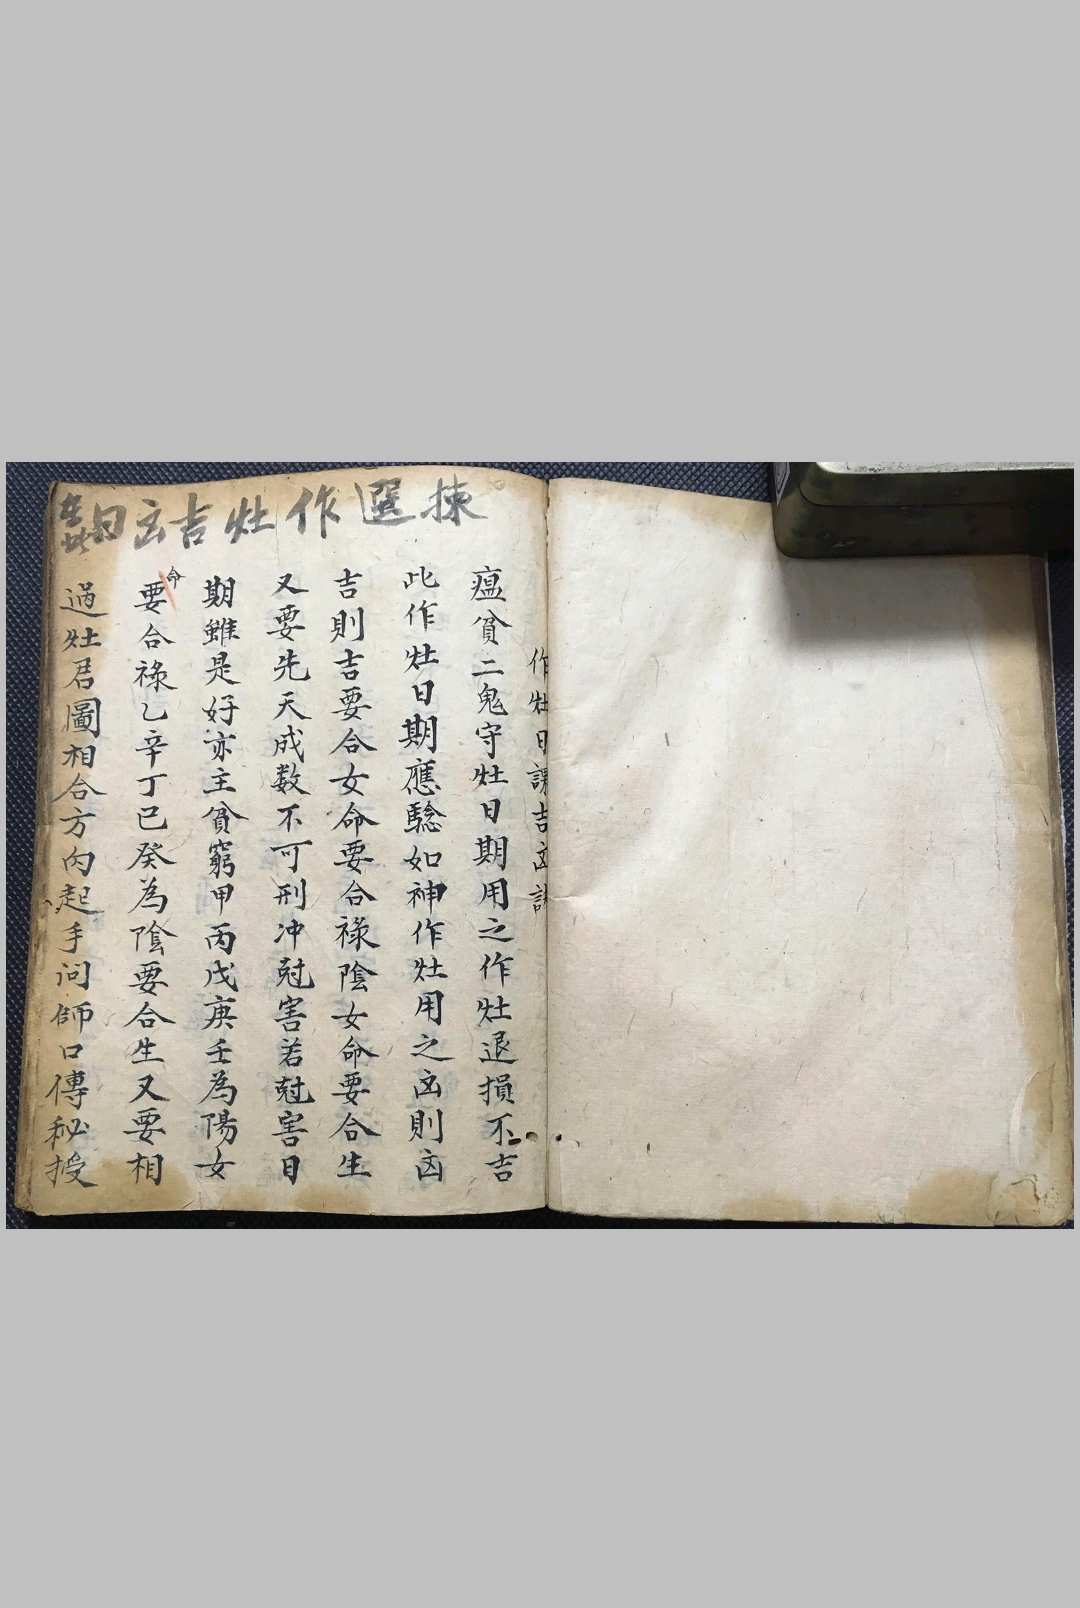 揀選作灶吉凶日在此
作灶日課吉凶訣
瘟貧二鬼守灶日期用之作灶退損不吉
此作灶日期應驗如神作灶用之凶則凶
吉則吉要合女命要合祿陰女命要合生
又要先天成数不可刑冲尅害若尅害日
期雖是好亦主貧窮甲丙戊庚壬為陽女
命要合祿乙辛丁己癸為陰要合生又要相
過灶君圖相合方内起手问師口傳秘授